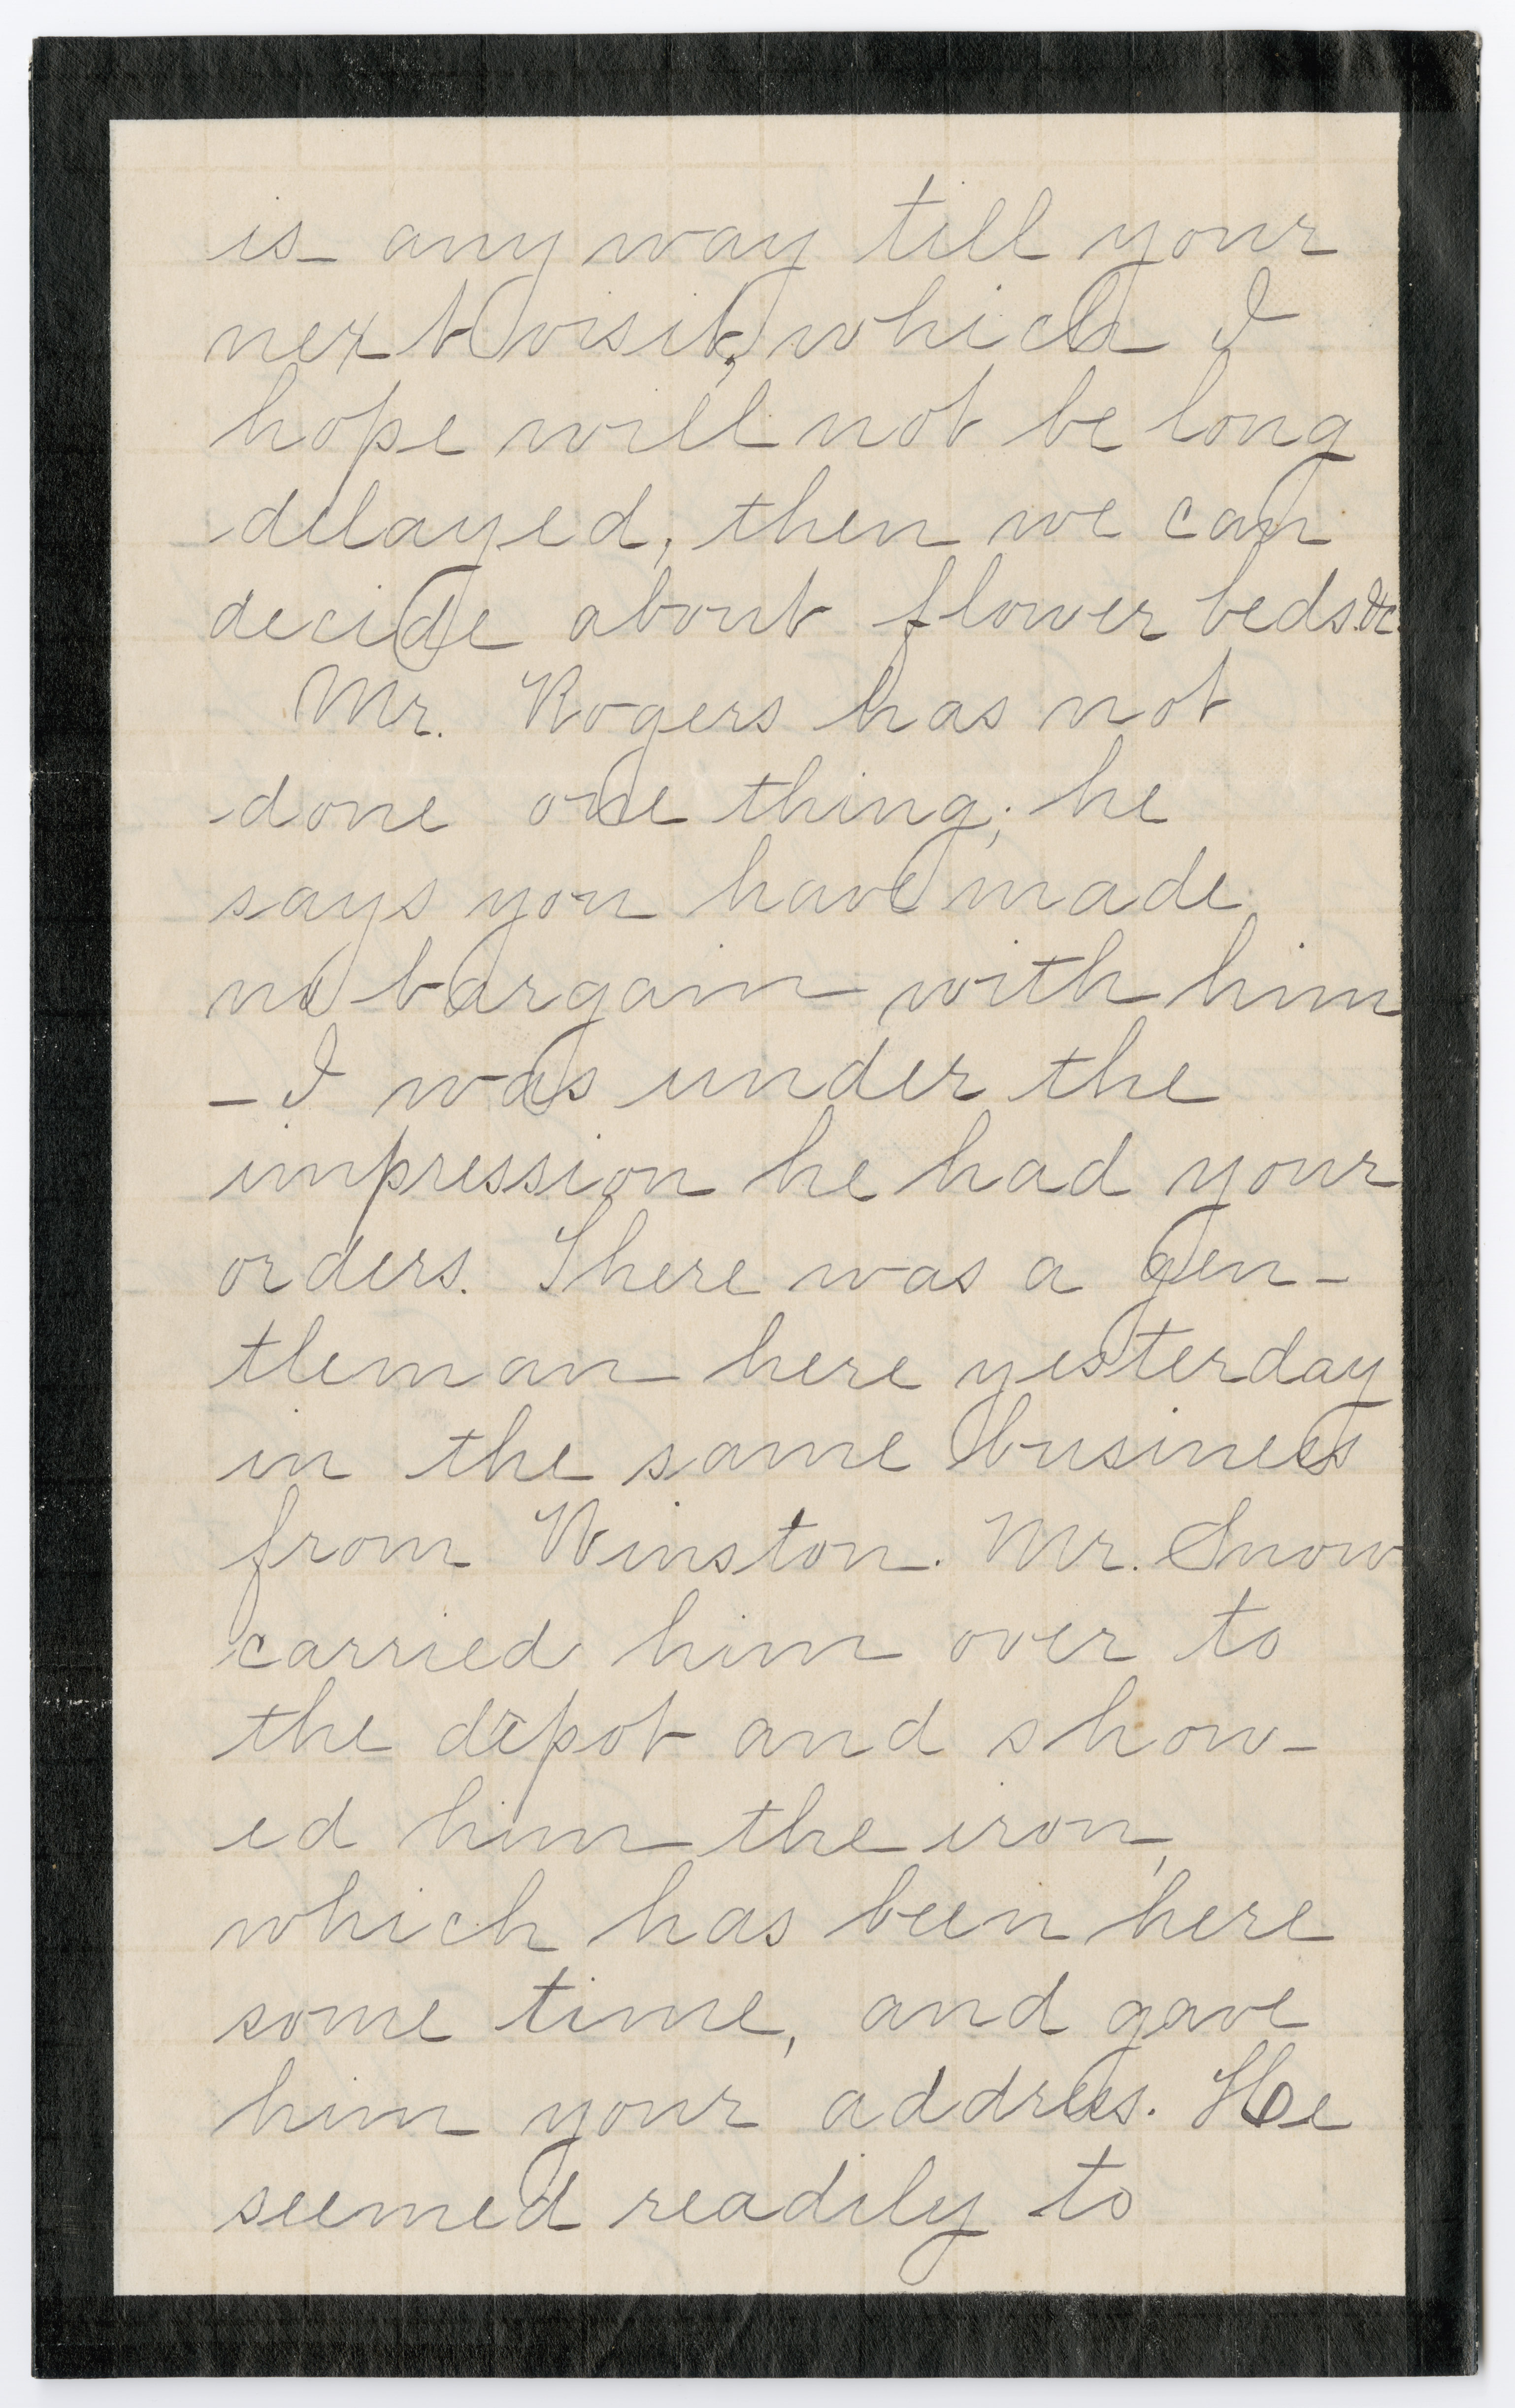 is anyway till your
next visit, which I
hope will not be long
delayed, then we can
decide about flower beds &c.
Mr. Rogers has not
done one thing; he
says you have made
no bargain with him
- I was under the
impression he had your
orders. There was a gen-
tleman here yesterday
in the same business
from Winston. Mr. Snow
carried him over to
the depot and show-
ed him the iron,
which has been here
some time, and gave
him your address. He
seemed readily to